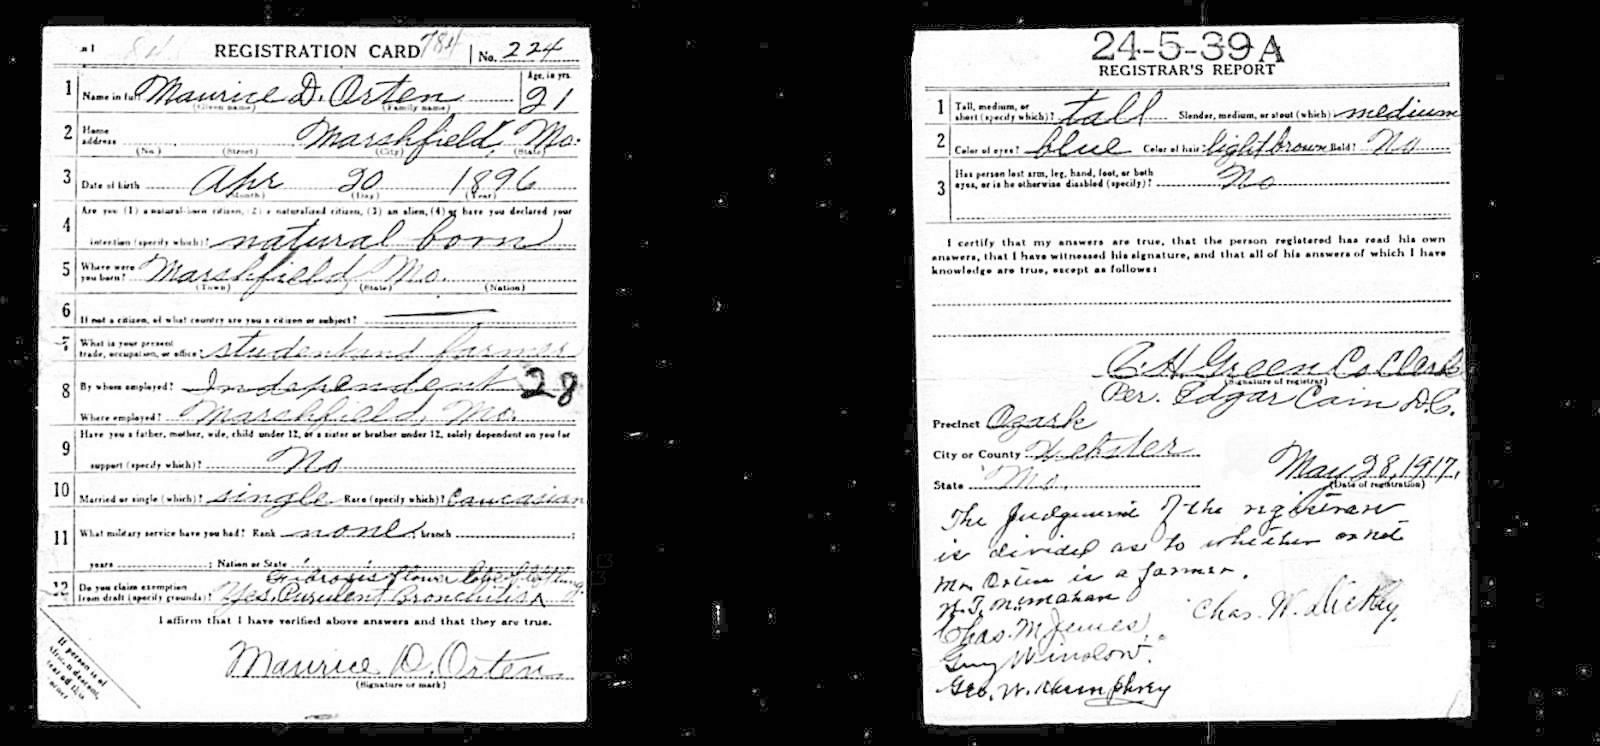 REGISTRATION CARD 784 No. 224
1 Name in full Maurice D. Orten Age, in yrs. 21
(Given name) (Family name)
2 Home address Marshfield, Mo.
(No.) (Street) (City) (State)
3 Date of birth Apr 20 1896
(Month) (Day) (Year)
4 Are you (1) a natural-born citizen, (2) a naturalized citizen, (3) an alien, (4) or have you declared your
intention (specify which)? natural born
5 Where were you born? Marshfield, Mo.
(Town) (State) (Nation)
6 If not a citizen, of what country are you a citizen or subject?
7 What is your present trade, occupation, or office? student and farmer
8 By whom employed? Independent 28
Where employed? Marshfield, Mo.
9 Have you a father, mother, wife, child under 12, or a sister or brother under 12, solely dependent on you for
support (specify which)? No
10 Married or single (which)? single Race (specify which)? Caucasian
11 What military service have you had? Rank none; branch ;
years ; Nation or State
Fibrosis lower lobe of left lung
12 Do you claim exemption from draft (specify grounds)? Yes, Purulent Bronchitis
I affirm that I have verified above answers and that they are true.
Maurice D. Orten
(Signature or mark)
If person is of
African descent,
tear off this
corner
24-5-39 A
REGISTRAR'S REPORT
1 Tall, medium, or short (specify which)? tall Slender, medium, or stout (which)? medium
2 Color of eyes? blue Color of hair? light brown Bald? No
3 Has person lost arm, leg, hand, foot, or both eyes, or is he otherwise disabled (specify)? No
I certify that my answers are true, that the person registered has read his own
answers, that I have witnessed his signature, and that all of his answers of which I have
knowledge are true, except as follows:
C. H. Green Co Clerk
(Signature of registrar)
Per. Edgar Cain D.C.
Precinct Ozark
City or County Webster
State Mo.
May 28, 1917.
(Date of registration)
The Judgement of the registrars
is divided as to whether or not
Mr. Orten is a farmer.
McMahan
Chas. W. Dickey.
Chas. M. James
Guy Winslow.
Geo. W. Humphrey